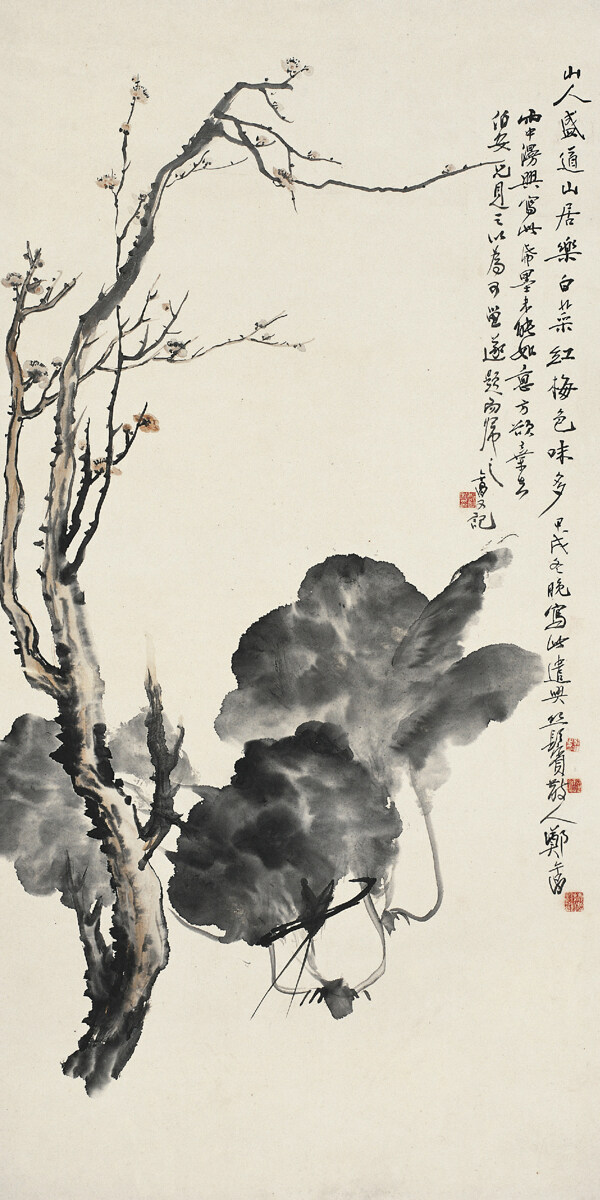 山人盛道山居樂白菜紅梅色味多甲戌冬晚寫此遣興芷鬢賓散人鄭
雨中漫興寫此帋墨未能如意方欲棄去
伯安兄見之以為可留遂題而歸之
又記